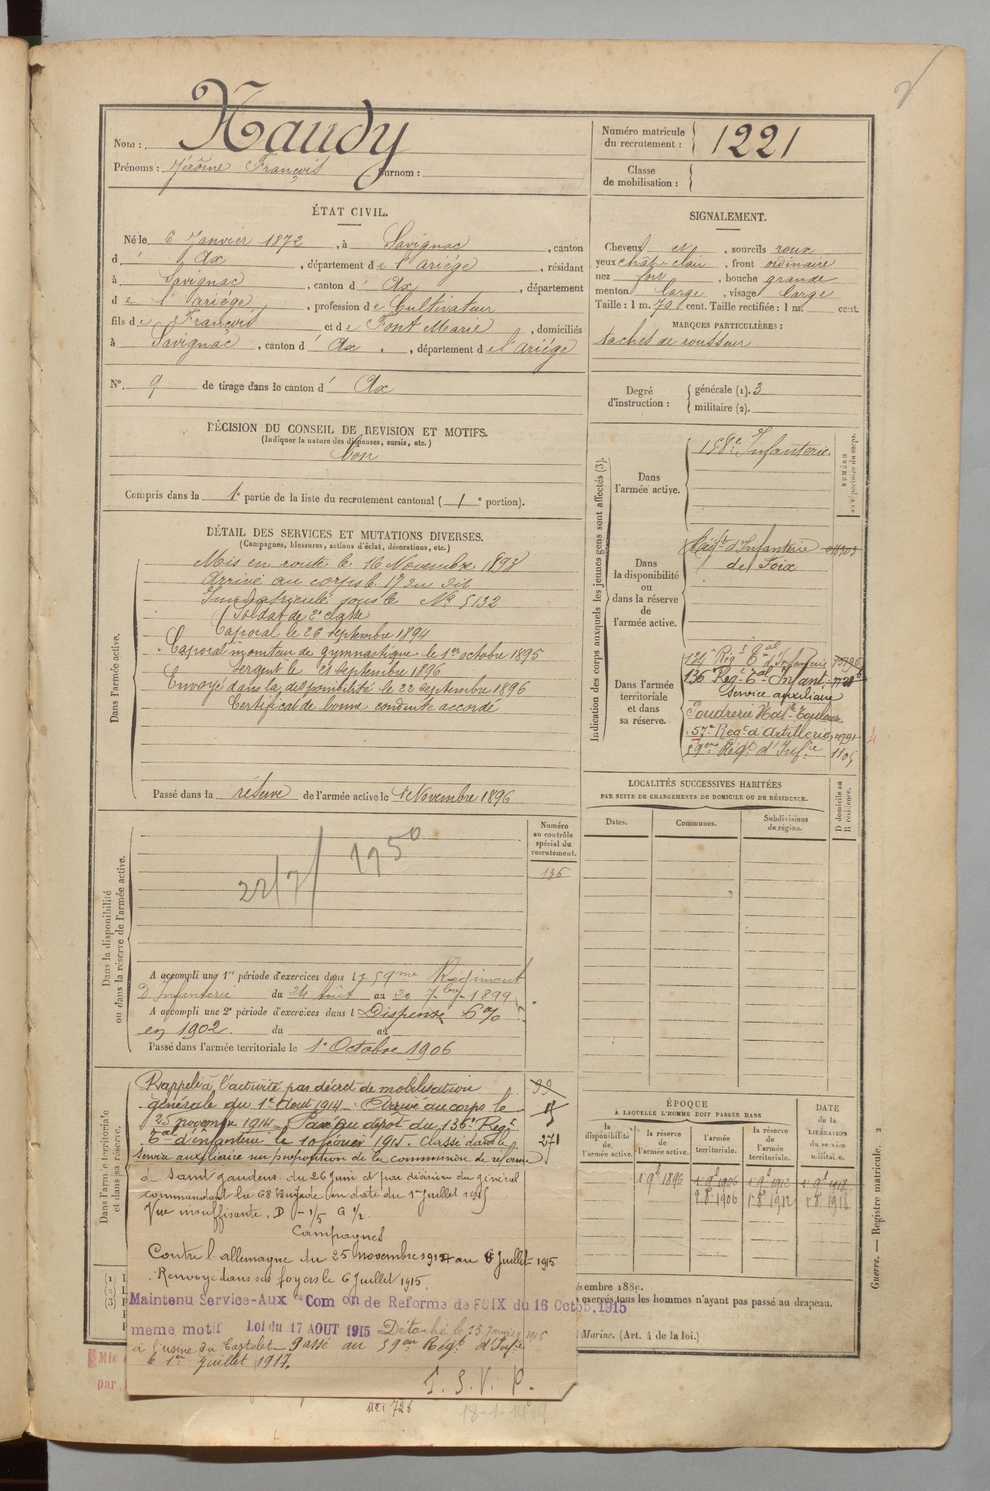 Nom : Naudy
Prénoms : Jérôme François Surnom :
Numéro matricule du recrutement : 1221
Classe de mobilisation :
ÉTAT CIVIL.
Né le 6 Janvier 1872, à Savignac, canton
d' Ax, département de l'Ariége, résidant
à Savignac, canton d' Ax, département
de l'Ariége, profession de Cultivateur
fils de François et de Font Marie, domiciliés
à Savignac, canton d' Ax, département de l'Ariége
N° 9 de tirage dans le canton d' Ax
SIGNALEMENT.
Cheveux et, sourcils roux
yeux chât-clair, front ordinaire
nez fort, bouche grande
menton large, visage large
Taille : 1 m. 70 cent. Taille rectifiée : 1 m. cent.
MARQUES PARTICULIÈRES :
taches de rousseur
Degré d'instruction : générale (1). 3
militaire (2).
DÉCISION DU CONSEIL DE REVISION ET MOTIFS.
(Indiquer la nature des dispenses, sursis, etc.)
bon
Compris dans la 1e partie de la liste du recrutement cantonal (1e portion).
DÉTAIL DES SERVICES ET MUTATIONS DIVERSES.
(Campagnes, blessures, actions d'éclat, décorations, etc.)
Dans l'armée active.
Mis en route le 16 Novembre 1893
Arrivé au corps le 17 du dit
Immatriculé sous le N° 5132
Soldat de 2e classe
Caporal le 26 septembre 1894
Caporal moniteur de gymnastique le 1er octobre 1895
Sergent le 21 septembre 1896
Envoyé dans la disponibilité le 22 septembre 1896
Certificat de bonne conduite accordé
Passé dans la réserve de l'armée active le 1 Novembre 1896
Indication des corps auxquels les jeunes gens sont affectés (3).
NUMÉRO au répertoire du corps.
Dans l'armée active.
158e Infanterie
Dans la disponibilité ou dans la réserve de l'armée active.
Régt d'Infanterie
de Foix
Dans l'armée territoriale et dans sa réserve.
136e Reg. Tal Infant
Service auxiliaire
Poudrerie Natle Toulouse
57e Regt d'Artillerie
59me Régt d'Infie
LOCALITÉS SUCCESSIVES HABITÉES
PAR SUITE DE CHANGEMENTS DE DOMICILE OU DE RÉSIDENCE.
Dates. Communes. Subdivisions de région. D domicile ou R résidence.
Dans la disponibilité ou dans la réserve de l'armée active.
Numéro au contrôle spécial du recrutement.
136
22/7/1950
A accompli une 1re période d'exercices dans le 59me Régiment
D'Infanterie du 24 août au 20 7bre 1899
A accompli une 2e période d'exercices dans l Dispensé 6%
en 1902. du au
Passé dans l'armée territoriale le 1e Octobre 1906
Dans l'armée territoriale et dans sa réserve.
Rappelé à l'activité par décret de mobilisation
générale du 1er Août 1914. Arrivé au corps le
25 novembre 1914. Passé au dépôt du 136e Regt
Tal d'infanterie le 10 février 1915. Classé dans le
service auxiliaire sur proposition de la commission de réforme
271
à Saint gaudens du 26 juin et par décision du général
commandant la 68 Brigade en date du 1er juillet 1915
Vue insuffisante. D = 1/5 G 1/2
Campagnes
Contre l'allemagne du 25 novembre 1914 au 6 Juillet 1915
Renvoyé dans ses foyers le 6 Juillet 1915.
Maintenu Service-Aux re Com on de Réforme de FOIX du 16 Octob, 1915
meme motif Loi du 17 AOUT 1915 Détaché le 25 Janvier 1916
à l'usine du Castelet. Passé au 59me Régt d'Infie
le 1er Juillet 1917.
T. S. V. P.
ÉPOQUE
À LAQUELLE L'HOMME DOIT PASSER DANS
la disponibilité de l'armée active. la réserve de l'armée active. l'armée territoriale. la réserve de l'armée territoriale.
DATE de la LIBÉRATION du service militaire.
1 9e 1896 1 9e 1906 1 9e 1912 1 9e 1918
1 8e 1906 1 8e 1912 1 8e 1918
exercés tous les hommes n'ayant pas passé au drapeau.
Marine. (Art. 4 de la loi.)
Guerre. — Registre matricule. 2
Mis
par
726
18-1-1919